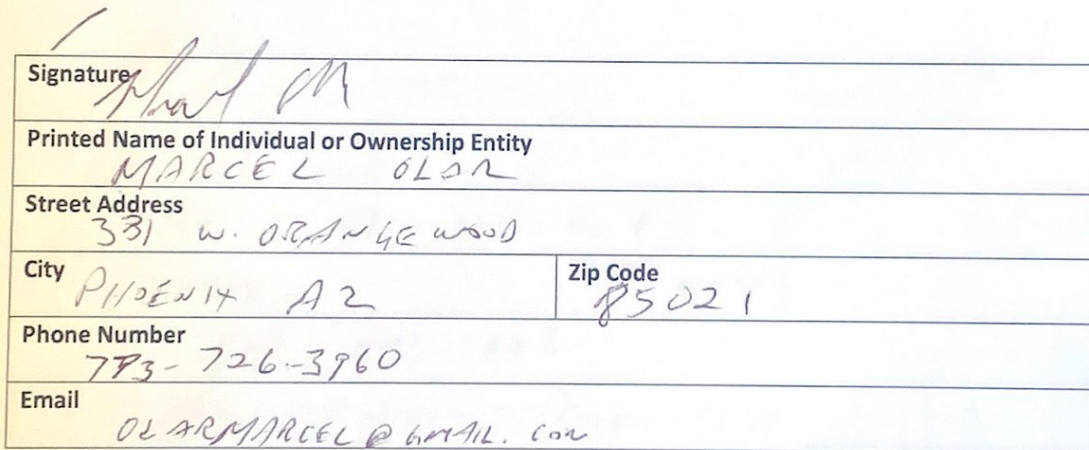 Signature
Printed Name of Individual or Ownership Entity
MARCEL OLAR
Street Address
331 W. ORANGEWOOD
City
PHOENIX AZ
Zip Code
85021
Phone Number
773-726-3960
Email
OLARMARCEL@GMAIL.COM